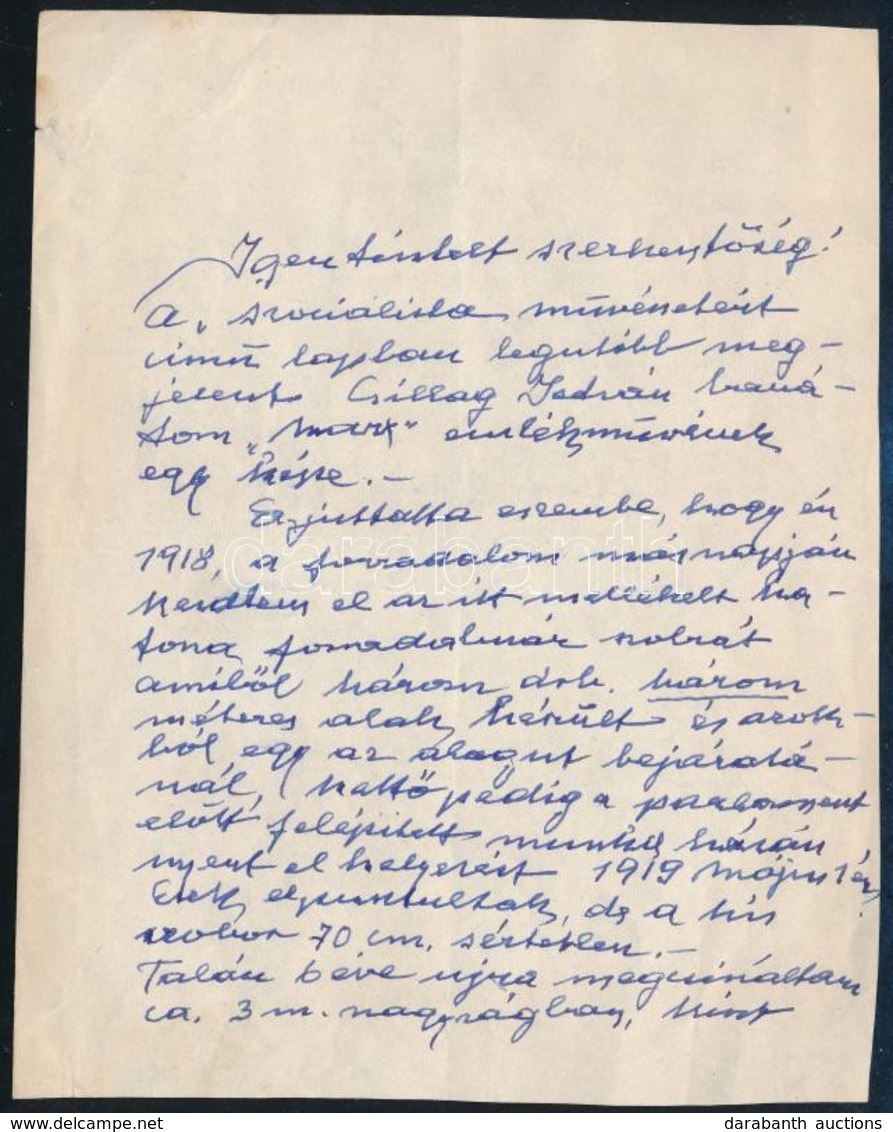 Igen tisztelt szerkesztőség!
A „szociálista művészetért
című lapban legutóbb meg-
jelent Csillag István bará-
tom „Marx" emlékművének
egy képe.-
Ez juttatta eszembe, hogy én
1918, a forradalom másnapján
kezdtem el az itt mellékelt ka-
tona forradalmár szobrát
amiből három drb. három
méteres alak készült és azok-
ból, egy az alagut bejáratá-
nál, kettő pedig a parlament
előtt felépitett munka házán
nyert el helyezést 1919 május 1én.
Ezek elpusztultak, de a kis
szobor 70 cm. sértetlen.-
Talán 6 éve ujra megcsináltam
ca. 3 m. nagyságban, mint
darabanth
darabanth auctions
www.delcampe.net